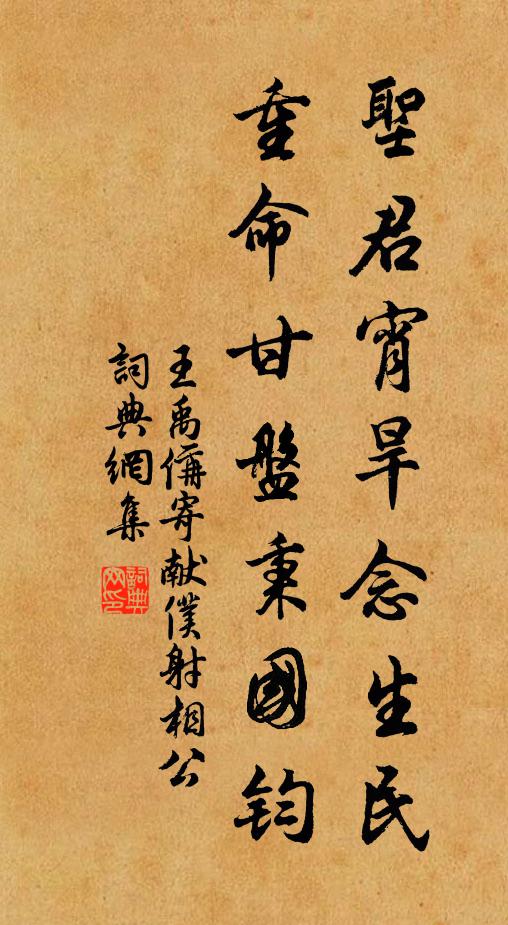 聖君宵旱念生民
重命甘盤秉國鈞
王禹偁寄献僕射相公
詞典網集
詞典網印